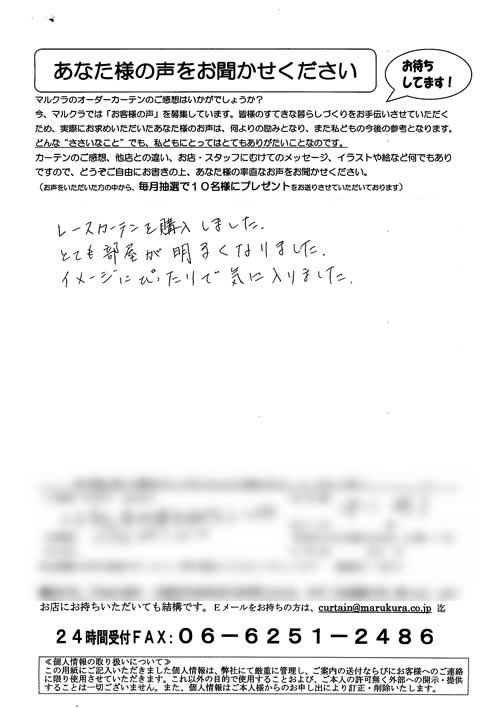 あなた様の声をお聞かせください
お待ち
してます!
マルクラのオーダーカーテンのご感想はいかがでしょうか?
今、マルクラでは「お客様の声」を募集しています。皆様のすてきな暮らしづくりをお手伝いさせていただく
ため、実際にお求めいただいたあなた様のお声は、何よりの励みとなり、また私どもの今後の参考となります。
どんな“ささいなこと”でも、私どもにとってはとてもありがたいことなのです。
カーテンのご感想、他店との違い、お店・スタッフにむけてのメッセージ、イラストや絵など何でもあり
ですので、どうぞご自由にお書きの上、あなた様の率直なお声をお聞かせください。
(お声をいただいた方の中から、毎月抽選で10名様にプレゼントをお送りさせていただいております)
レースカーテンを購入しました.
とても部屋が明るくなりました.
イメージにぴったりで気に入りました.
お店にお持ちいただいても結構です。Eメールをお持ちの方は、curtain@marukura.co.jp 迄
24時間受付FAX:06-6251-2486
≪個人情報の取り扱いについて≫
この用紙にご記入いただきました個人情報は、弊社にて厳重に管理し、ご案内の送付ならびにお客様へのご連絡
に限り使用させていただきます。これ以外の目的で使用することおよび、ご本人の許可無く外部への開示・提供
することは一切ございません。また、個人情報はご本人様からのお申し出により訂正・削除いたします。